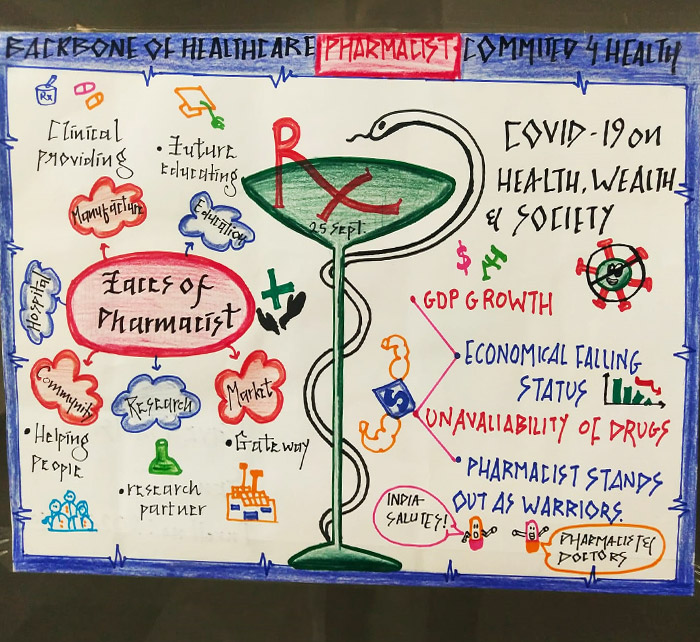 BACKBONE OF HEALTHCARE PHARMACIST COMMITED 4 HEALTH
Rx
Clinical
providing
• Future
educating
Manufacture
Education
Hospital
Faces of
Pharmacist
Community
Research
Market
• Helping
People
• research
partner
• Gateway
Rx
25 Sept.
COVID-19 on
HEALTH, WEALTH
& SOCIETY
$
• GDP GROWTH
• ECONOMICAL FALLING
STATUS
$
• UNAVALIABILITY OF DRUGS
• PHARMACIST STANDS
OUT AS WARRIORS.
INDIA-
SALUTES!
PHARMACISTS/
DOCTORS